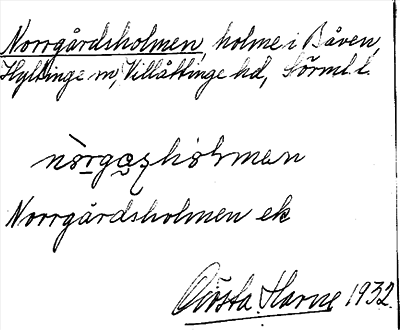 Norrgårdsholmen, holme i Båven,
Hyltinge sn, Villåttinge hd, Sörml. l.
Norrgårdsholmen ek
Gösta Harne 1932